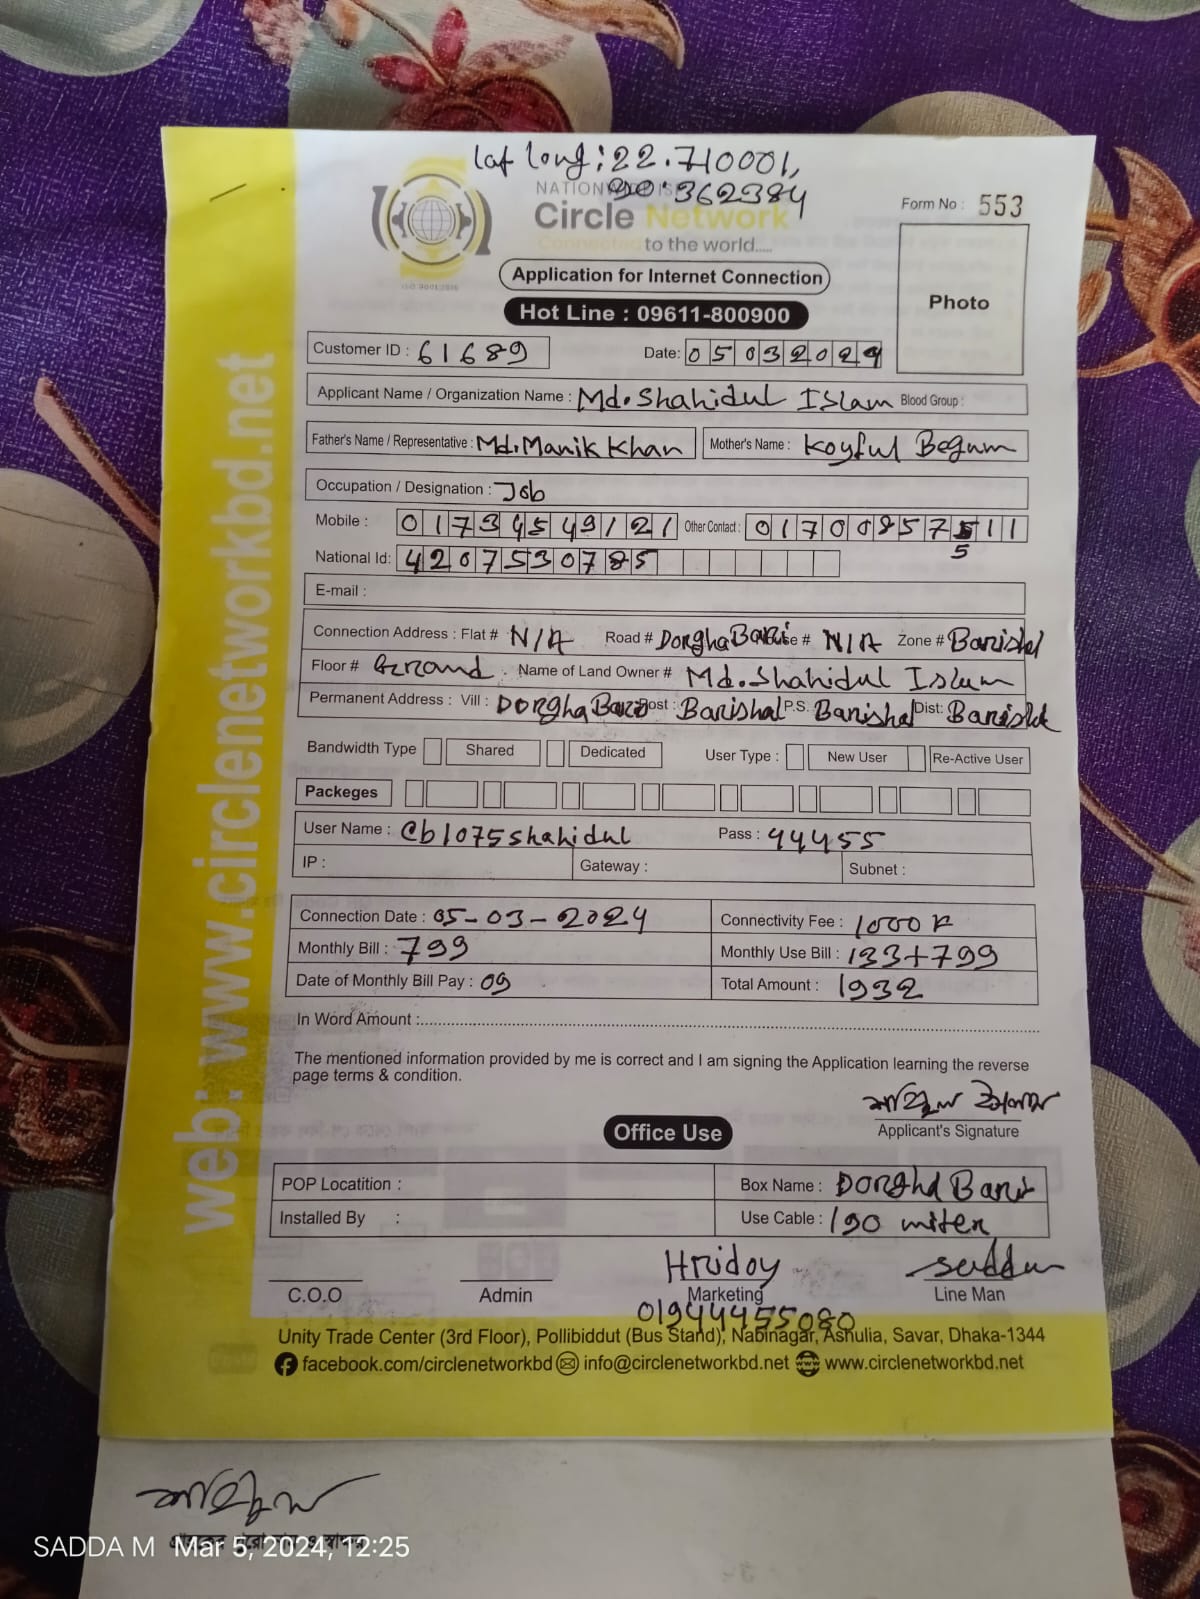 lat long: 22.710001,
90.362384
NATIONWIDE ISP
Circle Network
Connected to the world.....
ISO 9001:2015
Form No : 553
Application for Internet Connection
Photo
Hot Line : 09611-800900
Customer ID : 61689 Date: 05032024
Applicant Name / Organization Name : Md. Shahidul Islam Blood Group :
Father's Name / Representative : Md. Manik Khan Mother's Name : Koyful Begum
Occupation / Designation : Job
Mobile : 01734549121 Other Contact : 01700857511
5
National Id: 4207530785
E-mail :
Connection Address : Flat # N/A Road # Dorgha Bari House # N/A Zone # Barishal
Floor # Ground Name of Land Owner # Md. Shahidul Islam
Permanent Address : Vill : Dorgha Bari Post : Barishal P.S. Barishal Dist: Barishal
Bandwidth Type Shared Dedicated User Type : New User Re-Active User
Packeges
User Name : cb1075shahidul Pass : 44455
IP : Gateway : Subnet :
Connection Date : 05-03-2024 Connectivity Fee : 1000
Monthly Bill : 799 Monthly Use Bill : 133+799
Date of Monthly Bill Pay : 09 Total Amount : 1932
In Word Amount :
The mentioned information provided by me is correct and I am signing the Application learning the reverse
page terms & condition.
Applicant's Signature
Office Use
POP Locatition : Box Name : Dorgha Bari
Installed By : Use Cable : 190 miter
Hridoy Saddam
C.O.O Admin Marketing Line Man
01944455080
Unity Trade Center (3rd Floor), Pollibiddut (Bus Stand), Nabinagar, Ashulia, Savar, Dhaka-1344
facebook.com/circlenetworkbd info@circlenetworkbd.net www.circlenetworkbd.net
web: www.circlenetworkbd.net
SADDA M Mar 5, 2024, 12:25